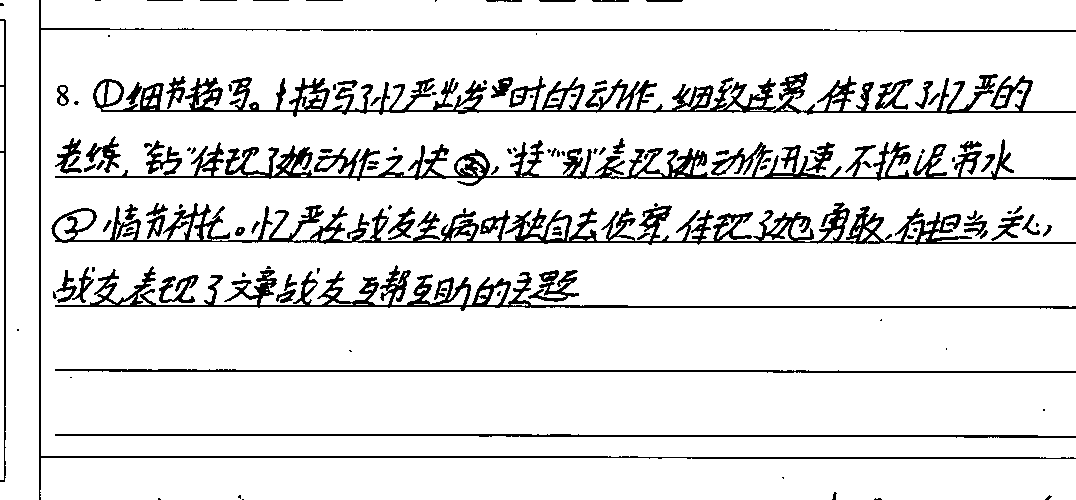 8. ①细节描写。描写了忆严出发时的动作,细致连贯,体现了忆严的
老练,"钻"体现了她动作之快,"挂""别"表现了她动作迅速,不拖泥带水
②情节衬托。忆严在战友生病时独自去侦察,体现了她勇敢,有担当,关心
战友,表现了文章战友互帮互助的主题